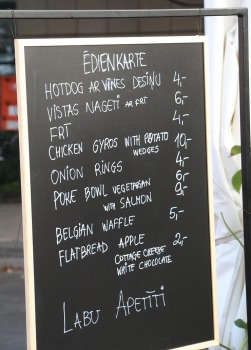 ĒDIENKARTE
HOTDOG AR VĪNES DESIŅU 4,-
VISTAS NAGETI AR FRT 6,-
FRT 4,-
CHICKEN GYROS WITH POTATO 10,-
WEDGES
ONION RINGS 4,-
POKE BOWL VEGETARIAN 6,-
WITH SALMON 9,-
BELGIAN WAFFLE 5,-
FLATBREAD APPLE 2,-
COTTAGE CHEESE
WHITE CHOCOLATE
LABU APETĪTI